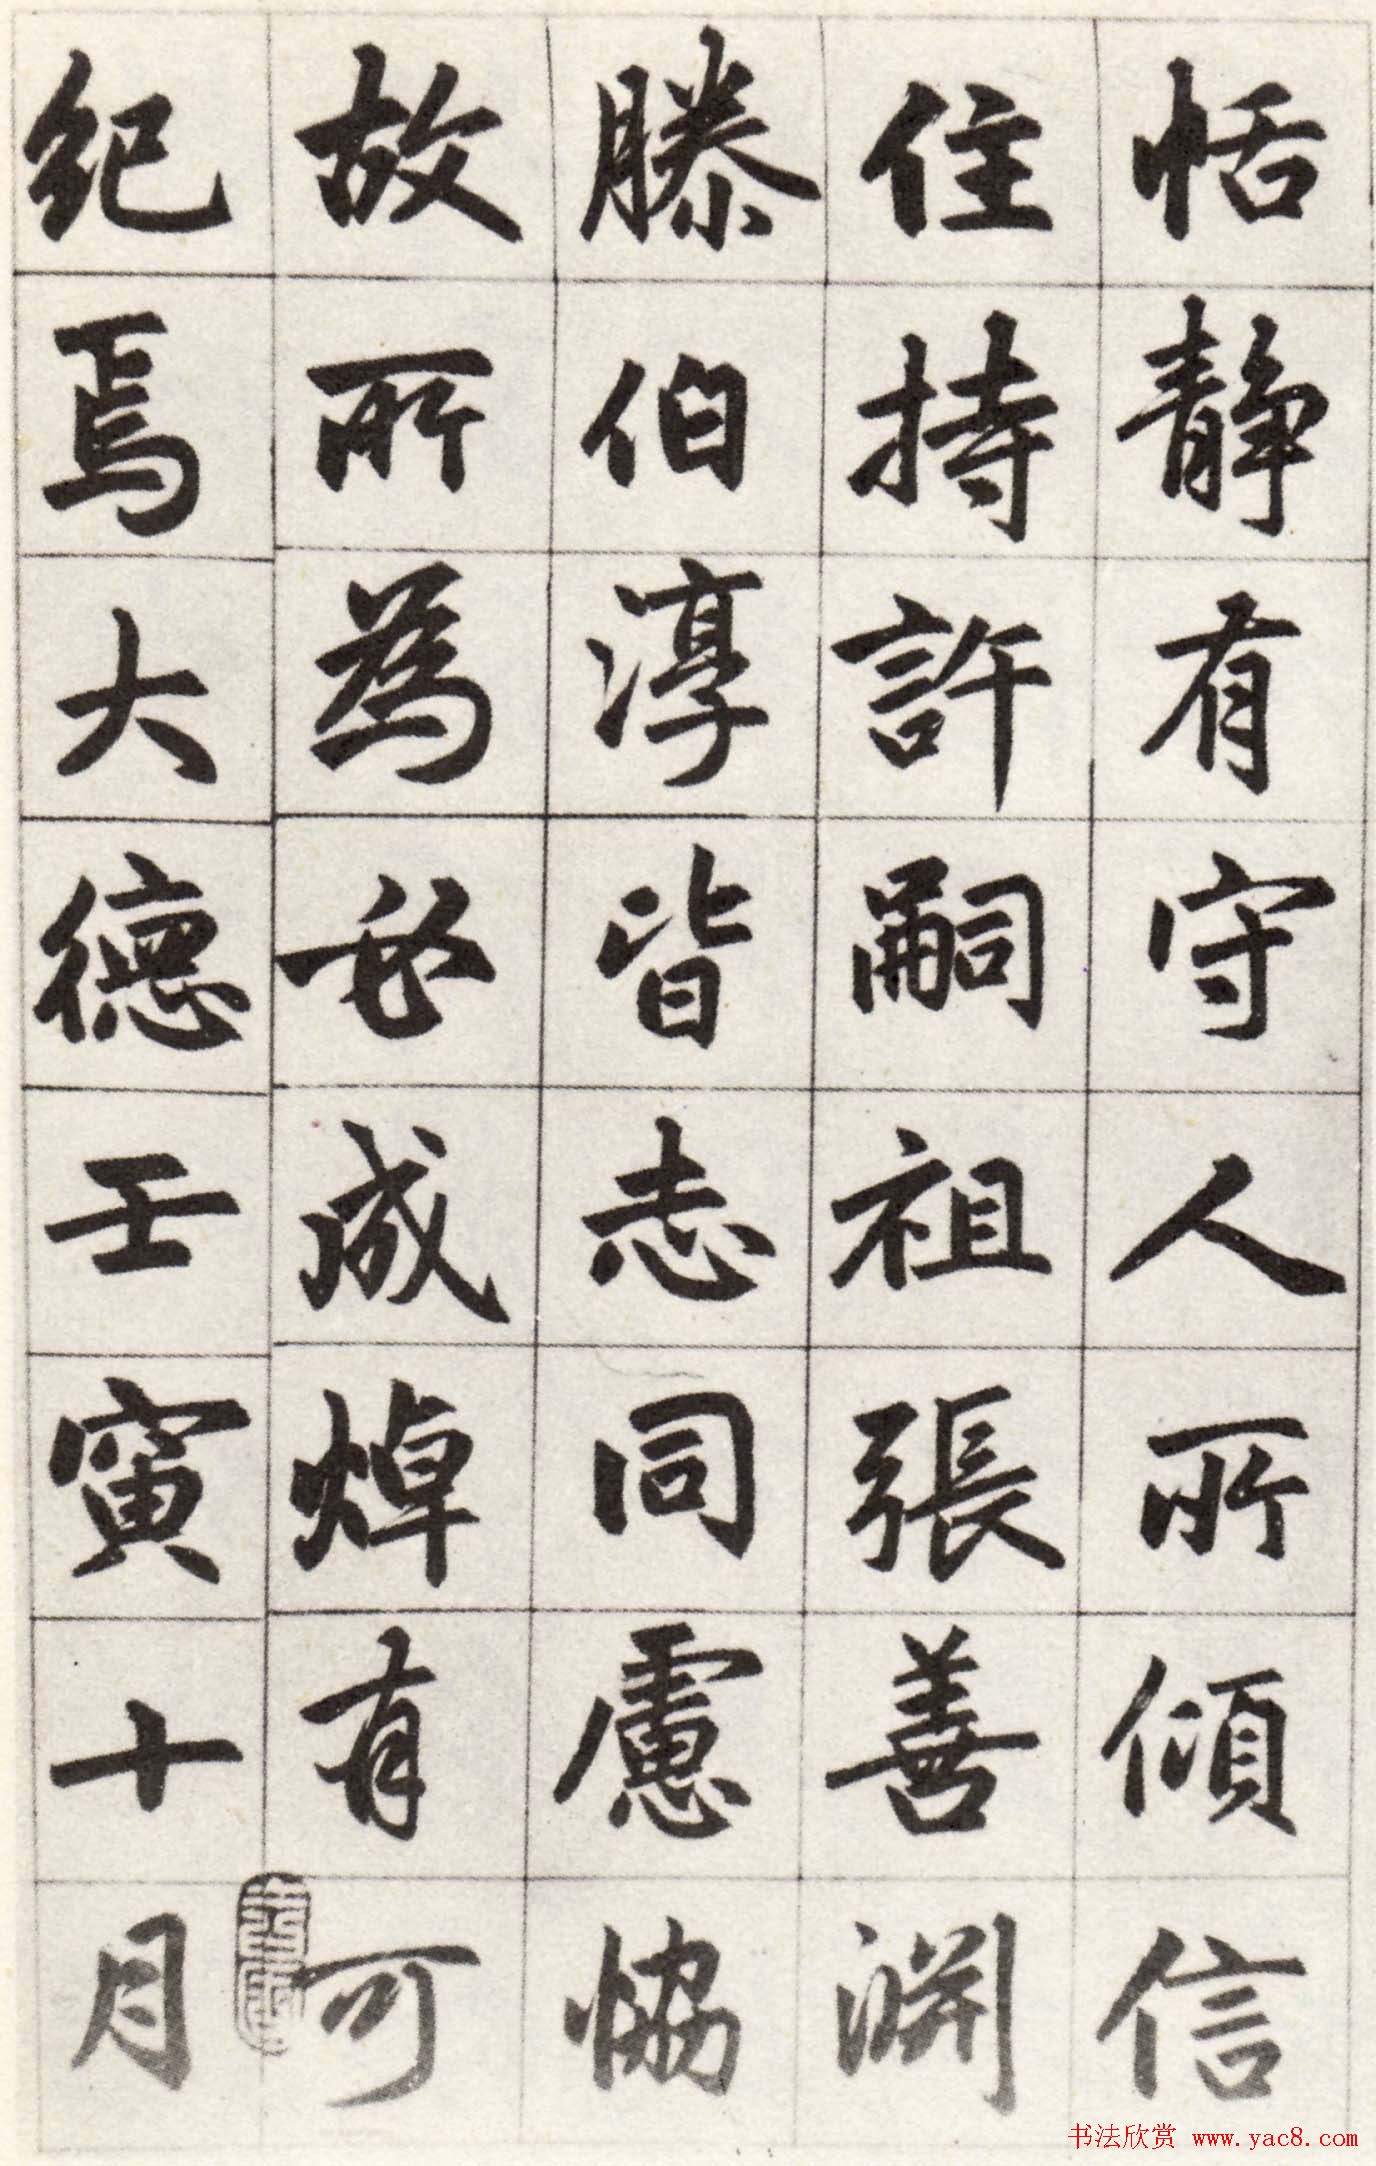 恬静有守人所傾信
住持許嗣祖張善渊
滕伯淳皆志同慮恊
故所為必成焯有可
紀焉大德壬寅十月
书法欣赏 www.yac8.com